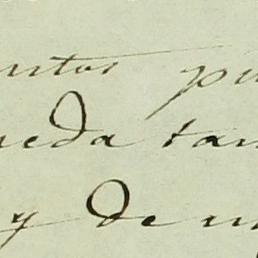 ntos pu
ueda tan
y de m